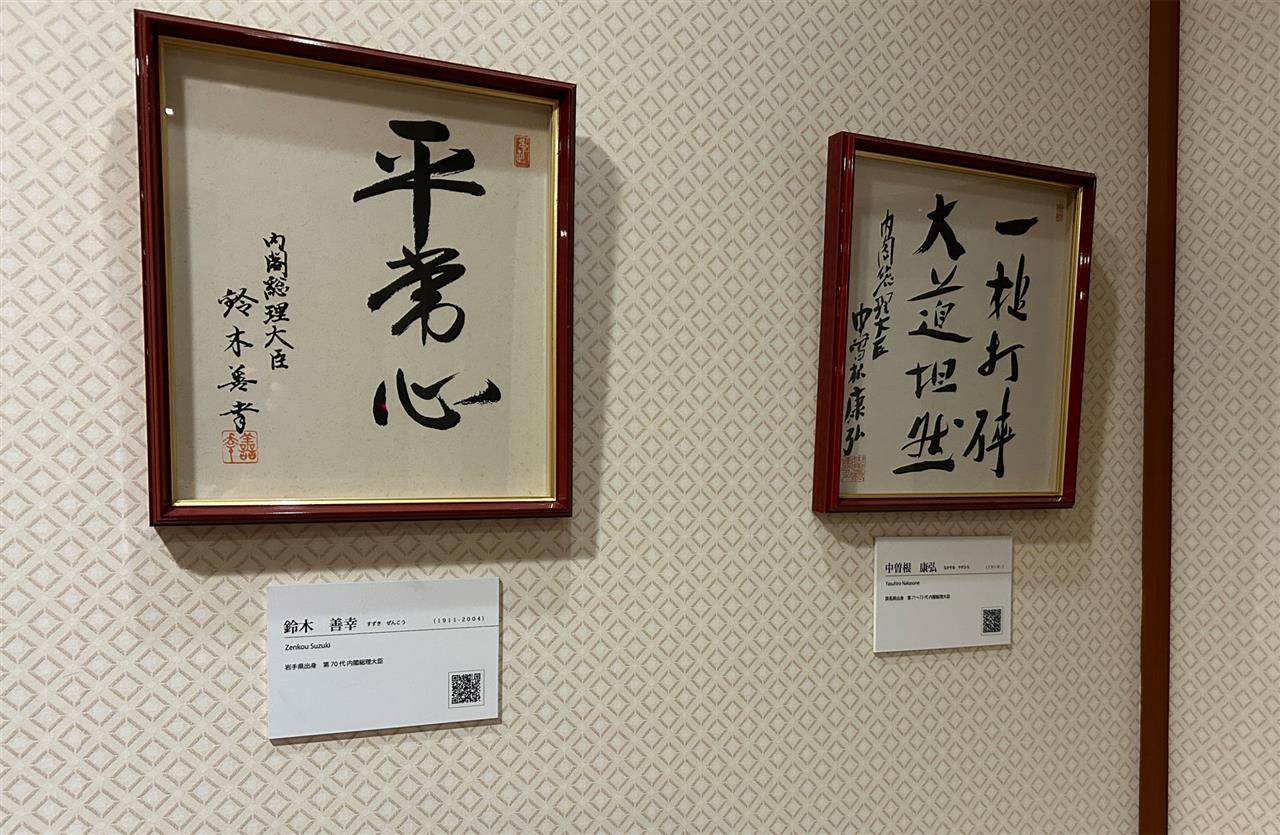 平常心
内閣総理大臣
鈴木善幸
善幸
鈴木 善幸 すずき ぜんこう (1911-2004)
Zenkou Suzuki
岩手県出身 第70代内閣総理大臣
一槌打砕
大道坦然
内閣総理大臣
中曽根康弘
中曽根 康弘 なかそね やすひろ (1918-)
Yasuhiro Nakasone
群馬県出身 第71〜73代内閣総理大臣